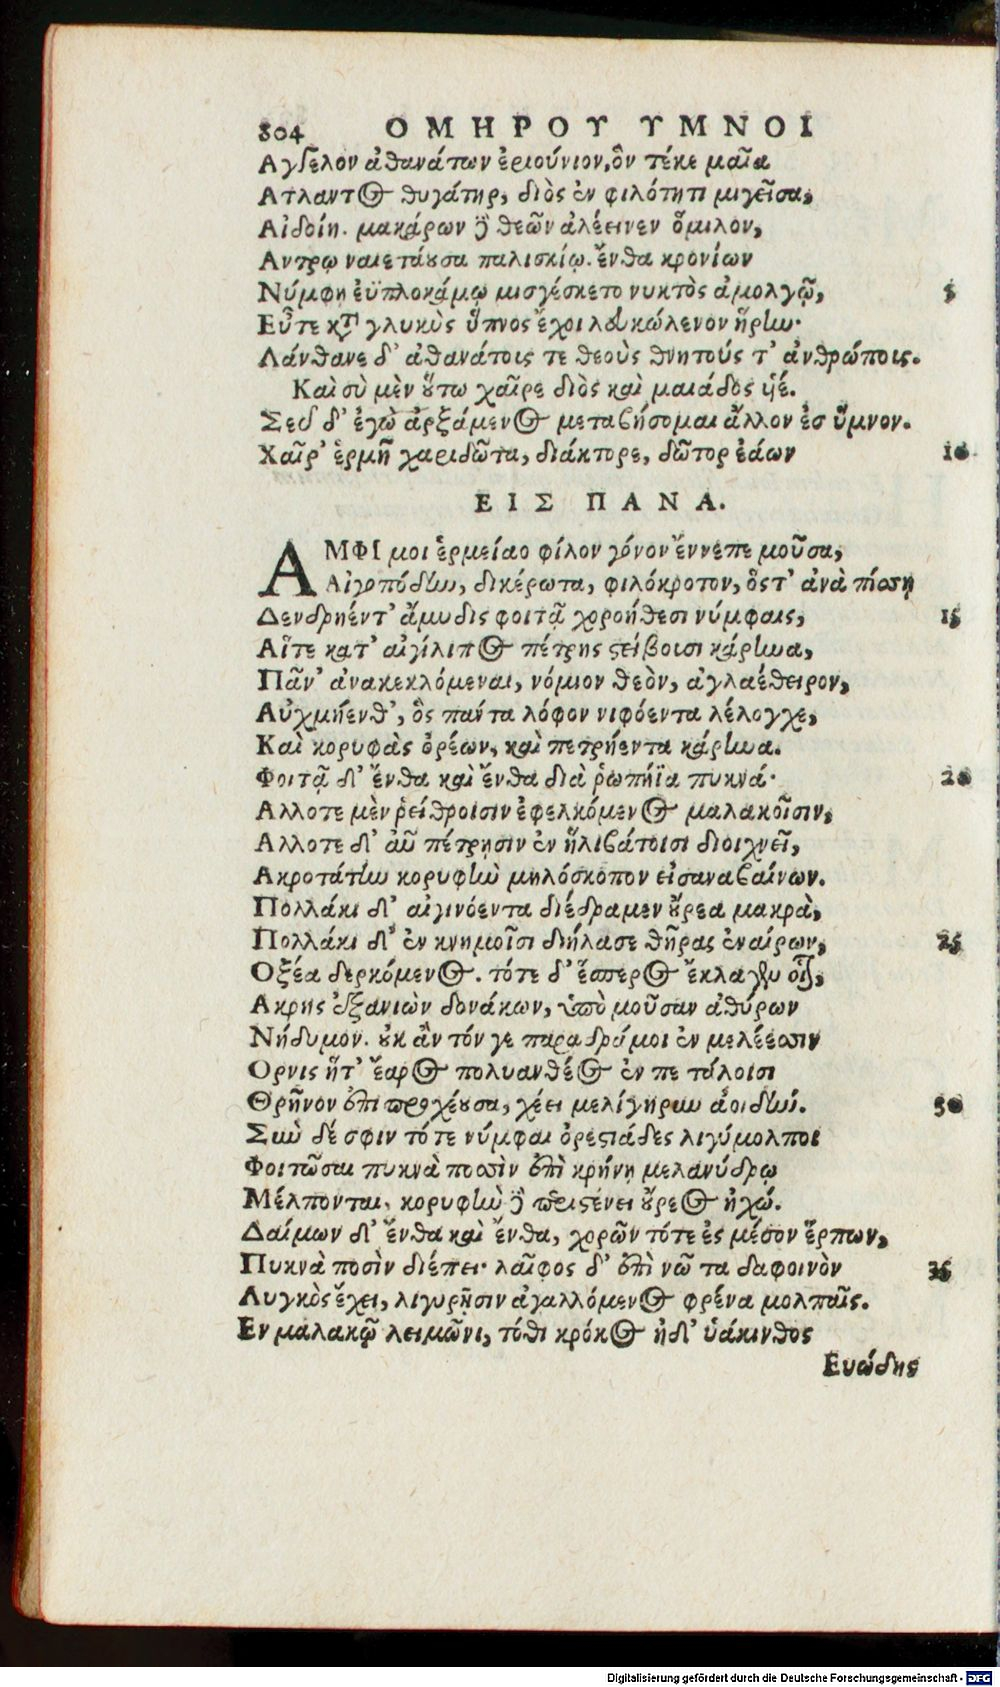 804 ΟΜΗΡΟΥ ΥΜΝΟΙ
Αγγελον ἀθανάτων ἐριούνιον, ὃν τέκε μαῖα
Ατλαντος θυγάτηρ, διὸς ἐν φιλότητι μιγεῖσα,
Αἰδοίη. μακάρων δὲ θεῶν ἀλέεινεν ὅμιλον,
Αντρῳ ναιετάουσα παλισκίῳ. ἔνθα κρονίων
Νύμφῃ ἐϋπλοκάμῳ μισγέσκετο νυκτὸς ἀμολγῷ, 5
Εὖτε κατὰ γλυκὺς ὕπνος ἔχοι λευκώλενον ἥρην·
Λάνθανε δ' ἀθανάτοις τε θεοὺς θνητούς τ' ἀνθρώποις.
Καὶ σὺ μὲν οὕτω χαῖρε διὸς καὶ μαιάδος υἱέ.
Σεῦ δ' ἐγὼ ἀρξάμενος μεταβήσομαι ἄλλον ἐσ ὕμνον.
Χαῖρ' ἑρμῆ χαριδῶτα, διάκτορε, δῶτορ ἐάων 10
ΕΙΣ ΠΑΝΑ.
ΑΜΦΙ μοι ἑρμείαο φίλον γόνον ἔννεπε μοῦσα,
Αἰγοπόδην, δικέρωτα, φιλόκροτον, ὅς τ' ἀνὰ πίσση
Δενδρήεντ' ἄμυδις φοιτᾷ χοροήθεσι νύμφαις, 15
Αἵτε κατ' αἰγίλιπος πέτρης στείβουσι κάρηνα,
Πᾶν' ἀνακεκλόμεναι, νόμιον θεὸν, ἀγλαέθειρον,
Αὐχμήενθ', ὃς πάντα λόφον νιφόεντα λέλογχε,
Καὶ κορυφὰς ὀρέων, καὶ πετρήεντα κάρηνα.
Φοιτᾷ δ' ἔνθα καὶ ἔνθα διὰ ῥωπήϊα πυκνά· 20
Αλλοτε μὲν ῥείθροισιν ἐφελκόμενος μαλακοῖσιν,
Αλλοτε δ' αὖ πέτρῃσιν ἐν ἠλιβάτοισι διοιχνεῖ,
Ακροτάτην κορυφὴν μηλόσκοπον εἰσαναβαίνων.
Πολλάκι δ' αἰγινόεντα διέδραμεν οὔρεα μακρὰ,
Πολλάκι δ' ἐν κνημοῖσι διήλασε θῆρας ἐναίρων, 25
Οξέα δερκόμενος. τότε δ' ἕσπερος ἔκλαγξεν οἷον,
Ακρης ἐξανιὼν δονάκων, ὑπὸ μοῦσαν ἀθύρων
Νήδυμον. οὐκ ἂν τόν γε παραδράμοι ἐν μελέεσσιν
Ορνις ἥτ' ἔαρος πολυανθέος ἐν πετάλοισι
Θρῆνον ἐπιπροχέουσα, χέει μελίγηρυν ἀοιδήν. 30
Σὺν δέ σφιν τότε νύμφαι ὀρεστιάδες λιγύμολποι
Φοιτῶσαι πυκνὰ ποσσὶν ἐπὶ κρήνῃ μελανύδρῳ
Μέλπονται, κορυφὴν δὲ περιστένει οὔρεος ἠχώ.
Δαίμων δ' ἔνθα καὶ ἔνθα, χορῶν τότε ἐς μέσον ἕρπων,
Πυκνὰ ποσὶν διέπει· λαῖφος δ' ἐπὶ νῶτα δαφοινὸν 35
Λυγκὸς ἔχει, λιγυρῇσιν ἀγαλλόμενος φρένα μολπαῖς.
Εν μαλακῷ λειμῶνι, τόθι κρόκος ἠδ' ὑάκινθος
Ευώδης
Digitalisierung gefördert durch die Deutsche Forschungsgemeinschaft - DFG